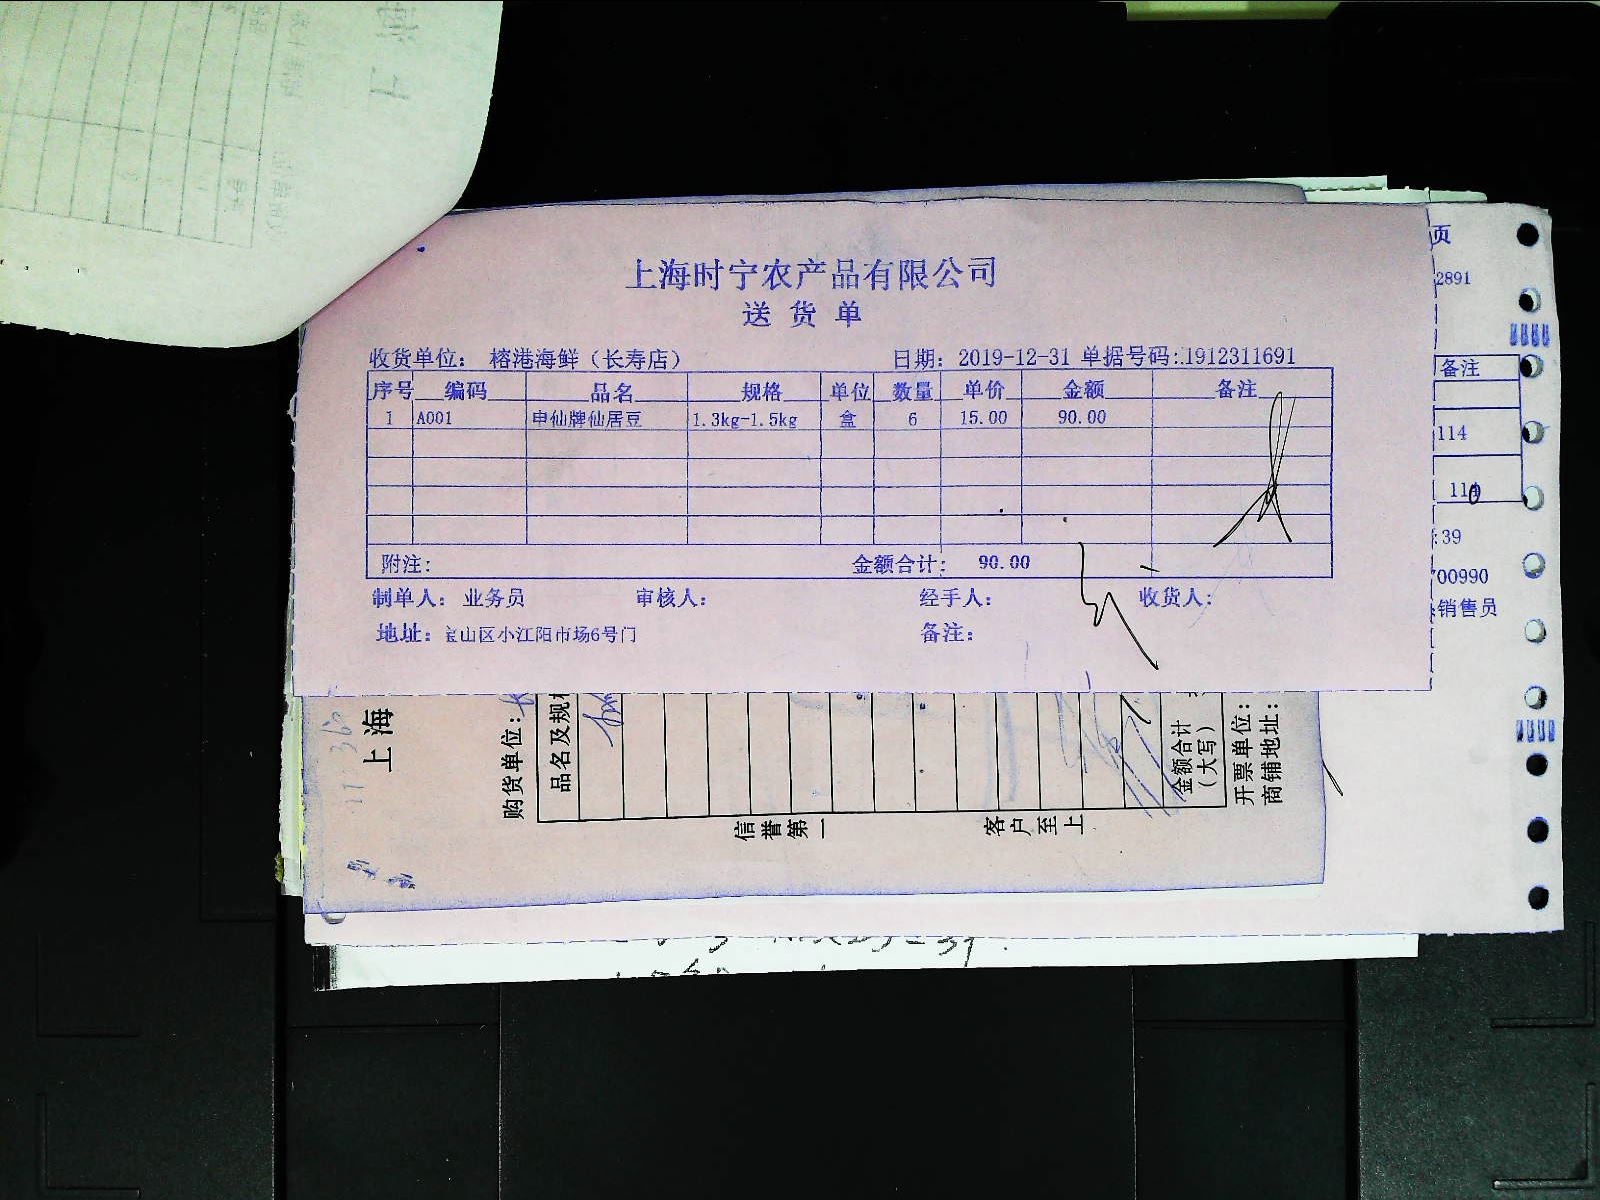 上海时宁农产品有限公司
送货单
收货单位: 榕港海鲜（长寿店） 日期: 2019-12-31 单据号码:1912311691
序号 编码 品名 规格 单位 数量 单价 金额 备注
1 A001 申仙牌仙居豆 1.3kg-1.5kg 盒 6 15.00 90.00
附注: 金额合计: 90.00
制单人: 业务员 审核人: 经手人: 收货人:
地址: 宝山区小江阳市场6号门 备注:
页
2891
备注
114
:39
00990
销售员
上海
购货单位:
品名及规
金额合计
（大写）
开票单位:
商铺地址:
信誉第一
客户至上